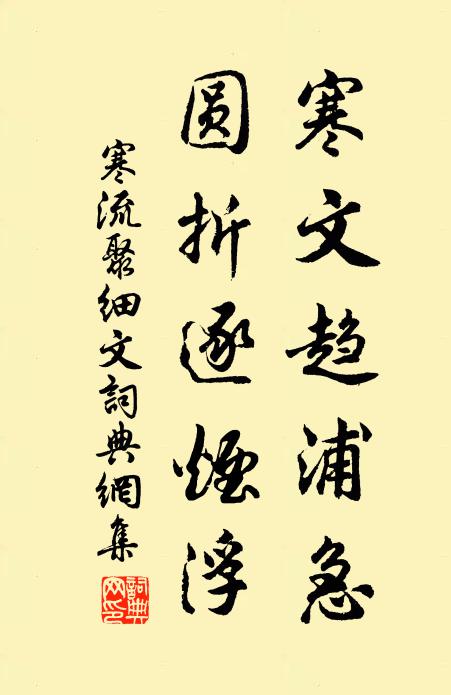 寒文趋浦急
圆折逐煙浮
寒流聚细文词典網集
詞典
网印